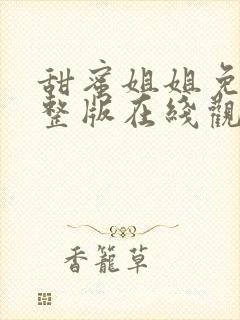 甜蜜姐姐免
整版在綫觀
香籠草